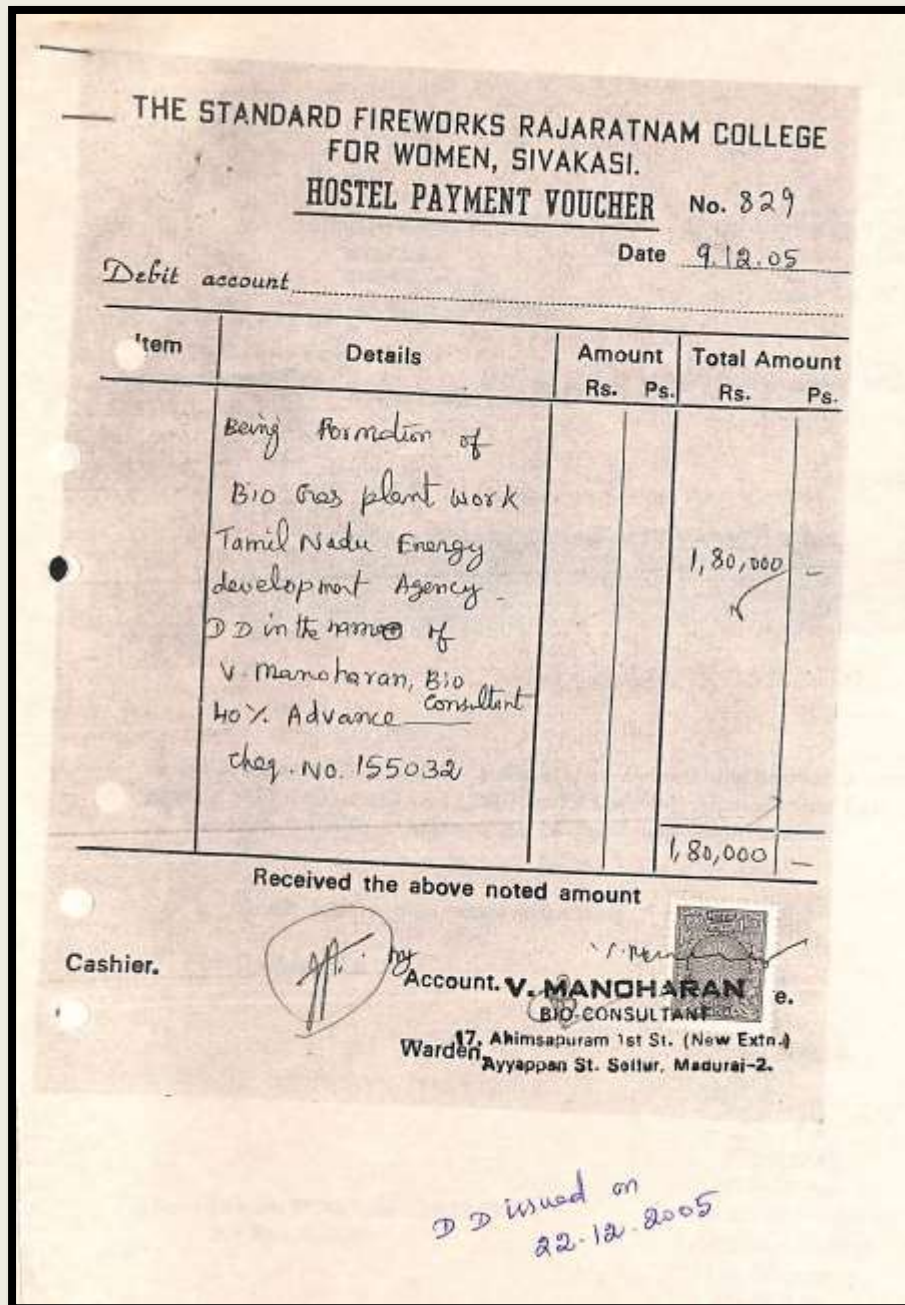 THE STANDARD FIREWORKS RAJARATNAM COLLEGE
FOR WOMEN, SIVAKASI.
HOSTEL PAYMENT VOUCHER No. 829
Date 9.12.05
Debit account
Item Details Amount Total Amount
Rs. Ps. Rs. Ps.
Being Formation of
Bio Gas plant work
Tamil Nadu Energy
development Agency - 1,80,000 -
DD in the name of
V. Manoharan, Bio
Consultant
40% Advance
Cheq. No. 155032
1,80,000 -
Received the above noted amount
Cashier. Account. V. MANOHARAN e.
BIO-CONSULTANT
Warden 17, Ahimsapuram 1st St. (New Extn.)
Ayyappan St. Sellur, Madurai-2.
DD issued on
22.12.2005